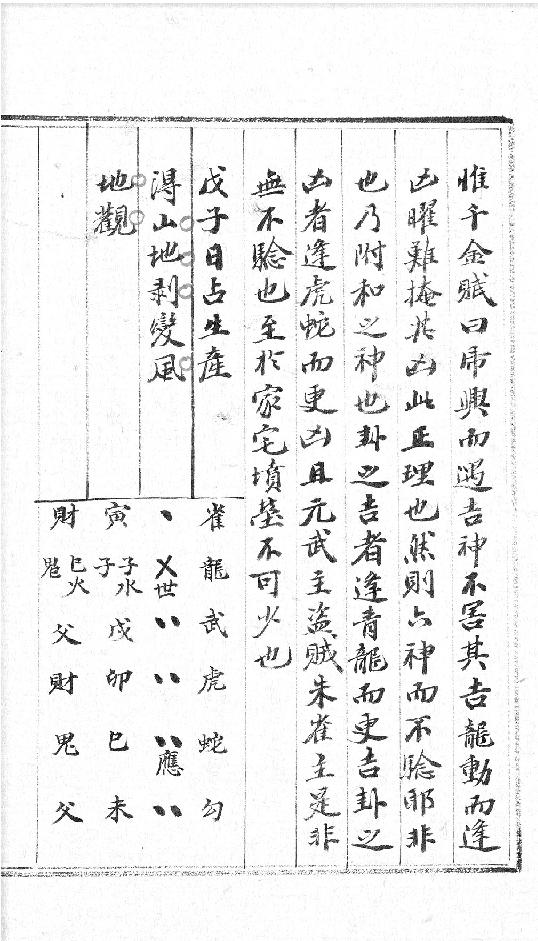 惟千金賦曰帝興而遇吉神不害其吉龍動而逢
凶曜難掩其凶此正理也然則六神而不騐耶非
也乃附和之神也卦之吉者逢青龍而更吉卦之
凶者逢虎蛇而更凶且元武主盜賊朱雀主是非
無不騐也至於家宅墳塋不可少也
戊子日占生產
淂山地剥變風
地觀
雀龍武虎蛇勾
、㐅世〃〃〃應〃
寅子子水巳火戌卯巳未
財鬼父財鬼父